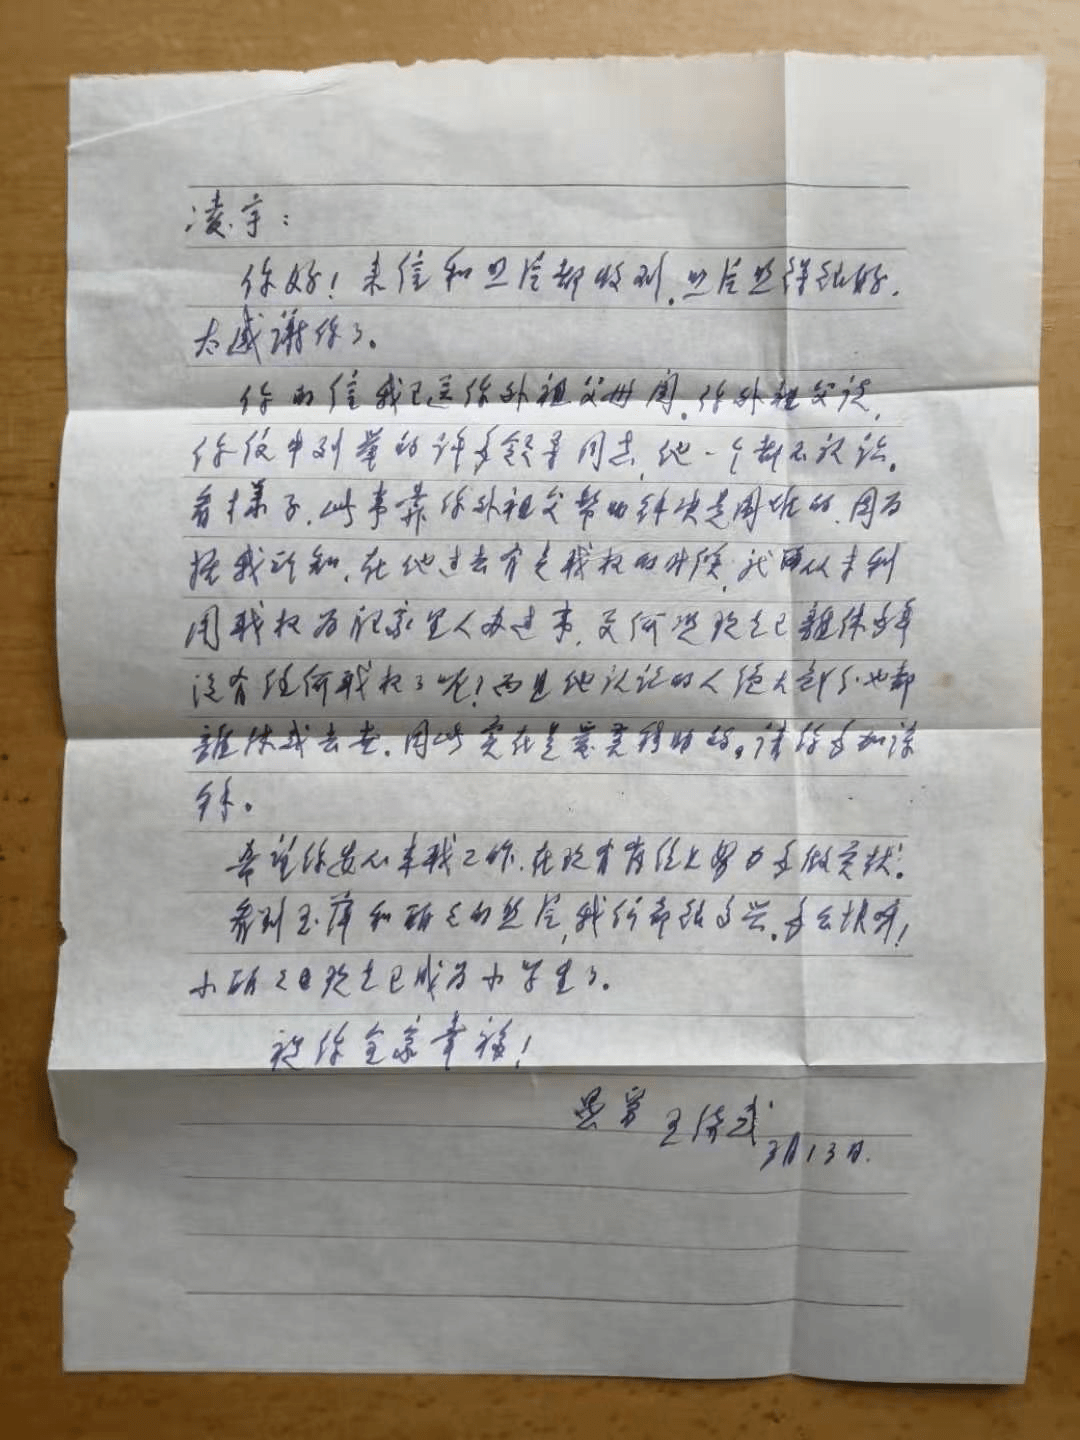 凌宇：
你好！来信和照片都收到，照片照得很好，
太感谢你了。
你的信我已送你外祖父母阅，你外祖父说，
你信中列举的许多领导同志，他一个都不认识。
看样子，此事靠你外祖父帮助解决是困难的，因为
据我所知，在他过去有点职权的时候，就从未利
用职权为自家里人办过事，更何况现在已離休多年
没有任何职权了呢！而且他认识的人绝大部分也都
離休或去世，因此实在是爱莫能助的。请你多加谅
解。
希望你安心本职工作，在现有岗位上努力多做贡献。
看到玉萍和研之的照片，我们都很高兴，多么快呀！
小研之现在已成为小学生了。
祝你全家幸福！
愚舅 王
3月13日.